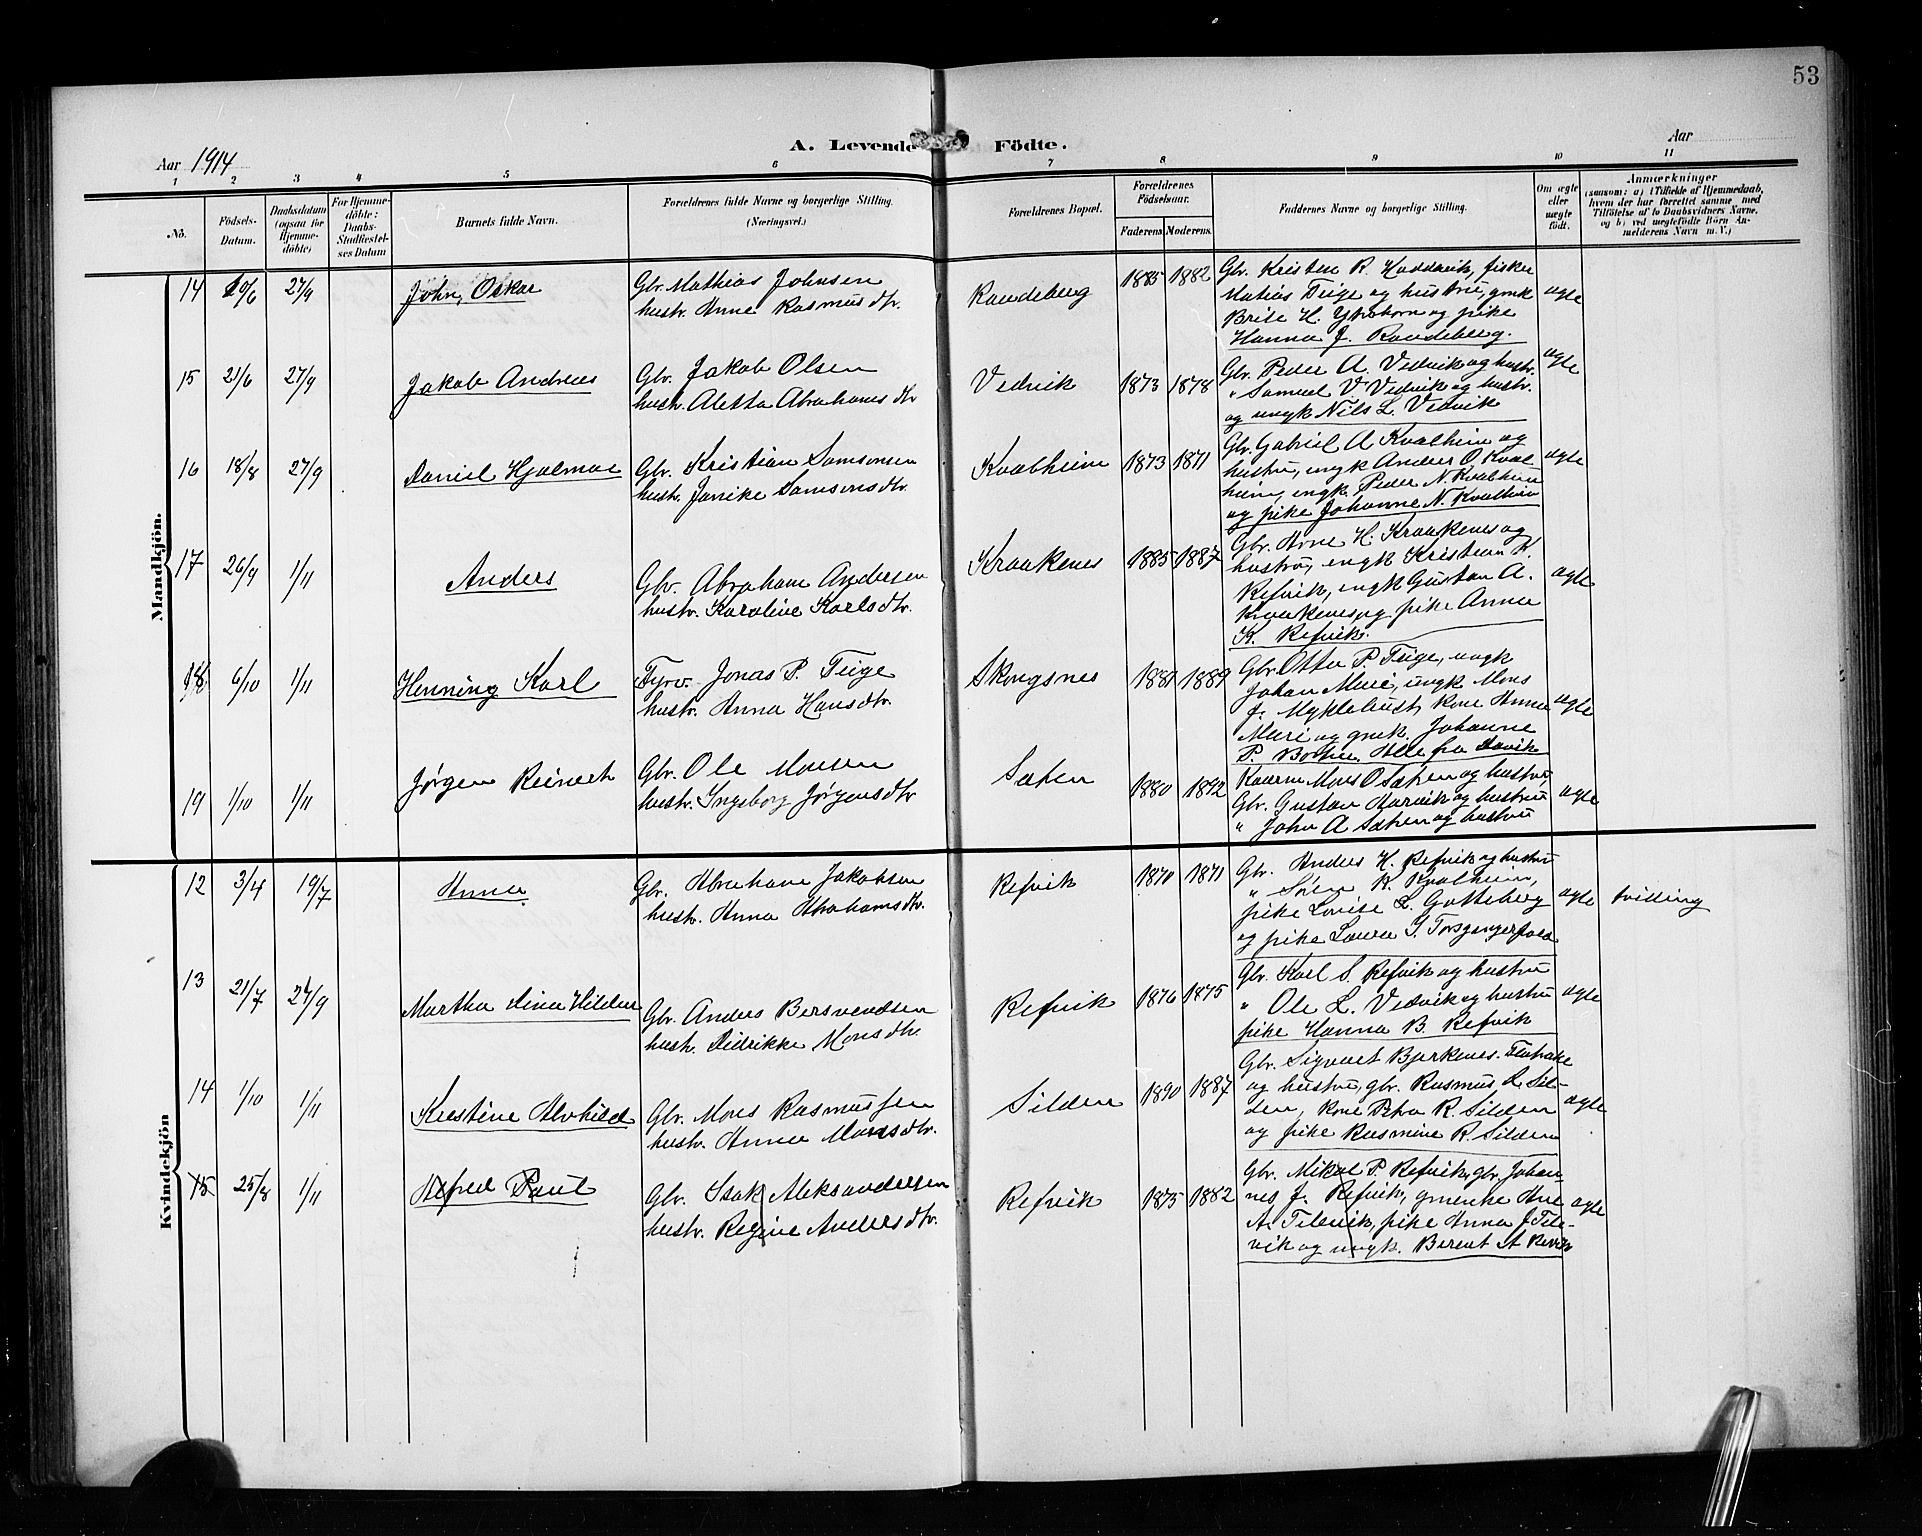 53
A. Levende Födte.
Aar 1914
Aar
1 2 3 4 5 6 7 8 9 10 11
No.
Födsels-Datum.
Daabsdatum (ogsaa for Hjemme-döbte)
For Hjemme-döbte: Daabs-Stadfæstel-ses Datum
Barnets fulde Navn.
Forældrenes fulde Navne og borgerlige Stilling. (Næringsvei.)
Forældrenes Bopæl.
Forældrenes Födselsaar.
Faderens. Moderens.
Faddernes Navne og borgerlige Stilling.
Om ægte eller uægte födt.
Anmærkninger
(saasom: a) i Tilfælde af Hjemmedaab, hvem der har forrettet samme, med Tilföielse af to Daabsvidners Navne, og b) ved uægtefödte Börn An-melderens Navn m. V.)
Mandkjön.
14 20/6 27/9 John, Oskar
Gbr. Mathias Johnsen
hustr. Anne Rasmusdtr.
Raudeberg 1885 1882
Gbr. Kristen R. Haddevik, fisker
Matias Teige og hustru, gmk
Brite H. Ytrehorn og pike
Hanna J. Raudeberg.
ægte
15 21/6 27/9 Jakob Andreas
Gbr. Jakob Olsen
hustr. Aletta Abrahamsdtr
Vedvik 1873 1878
Gbr. Peder A. Vedvik og hustr.
" Samuel V Vedvik og hustr.
og ungk Nils L. Vedvik
ægte
16 18/8 27/9 Daniel Hjalmar
Gbr. Kristian Samsonsen
hustr. Janike Samsonsdtr.
Kvalheim 1873 1871
Gbr. Gabriel A Kvalheim og
hustru, ungk Anders O Kval-
heim, ungk. Peder N. Kvalheim
og pike Johanne N. Kvalheim
ægte
17 26/9 1/11 Anders
Gbr. Abraham Andersen
hustr. Karoline Karlsdtr.
Kraakenes 1885 1887
Gbr. Arne H. Kraakenes og
hustru, ungk Kristian K.
Refvik, ungk Gustav A.
Kraakenes og pike Anna
K. Refvik.
ægte
18 6/10 1/11 Henning Karl
Fyrv. Jonas P. Teige
hustr. Anna Hansdtr.
Skongsnes 1881 1889
Gbr. Otto P. Teige, ungk
Johan Muri, ungk Mons
J. Myklebust, kone Anna
Muri og gmk. Johanne
P. Bortne. Alle fra Davik
ægte
19 1/10 1/11 Jørgen Reinert
Gbr. Ole Monsen
hustr. Ingeborg Jørgensdtr
Sæten 1880 1892
Kaarm Mons O Sæten og hustru
Gbr. Gustav Harvik og hustru
" John A Sæten og hustru
ægte
Kvindekjön
12 3/4 19/7 Anna
Gbr. Abraham Jakobsen
hustr. Anna Abrahamsdtr.
Refvik 1870 1871
Gbr. Anders H. Refvik og hustru
" Søren R. Kvalheim,
pike Lovise L. Gotteberg
og pike Laura J. Torsgangerfald
ægte tvilling
13 21/7 27/9 Martha Dina Hildur
Gbr. Anders Bersvendsen
hustr. Didrikke Monsdtr.
Refvik 1876 1875
Gbr. Karl S. Refvik og hustru
" Ole L. Vedvik og hustru
pike Hanna B. Refvik
ægte
14 1/10 1/11 Kristine Alvhild
Gbr. Mons Rasmussen
hustr. Anna Monsdtr.
Silden 1890 1887
Gbr. Sigvart Bjerkenes. Flatraket
og hustru, gbr. Rasmus R. Sil-
den, kone Petra R. Silden
og pike Rasmine R. Silden
ægte
15 25/8 1/11 Alfred Paul
Gbr. Isak Aleksandersen
hustr. Regine Andersdtr.
Refvik 1875 1882
Gbr. Mikal P. Refvik, gbr. Johan-
nes J. Refvik, gmenke Ane
A. Tilevik, pike Anna J Tile-
vik og ungk. Berent A Revik
ægte